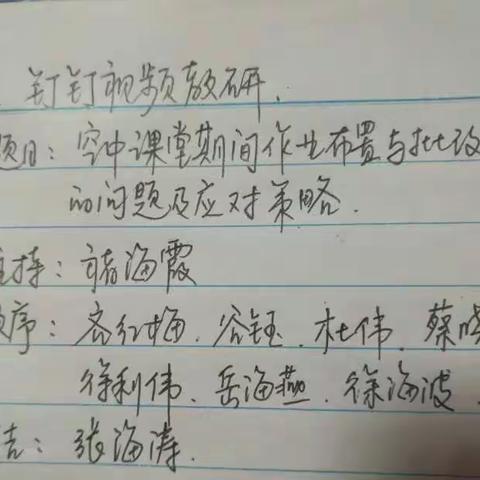 钉钉视频教研.
题目: 空中课堂期间作业布置与批改
的问题及应对策略.
主持: 褚海霞
顺序: 齐红梅. 谷钰. 杜伟. 蔡晓
徐利伟. 岳海燕. 徐海波.
结: 张海涛.